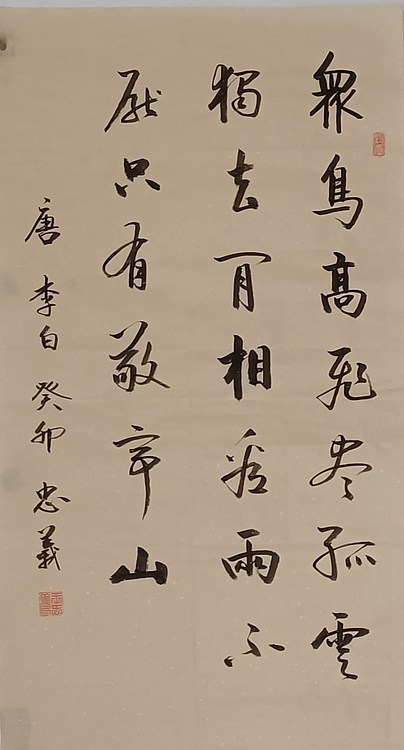 眾鳥高飛盡孤雲
獨去閒相看兩不
厭只有敬亭山
唐 李白 癸卯 忠義